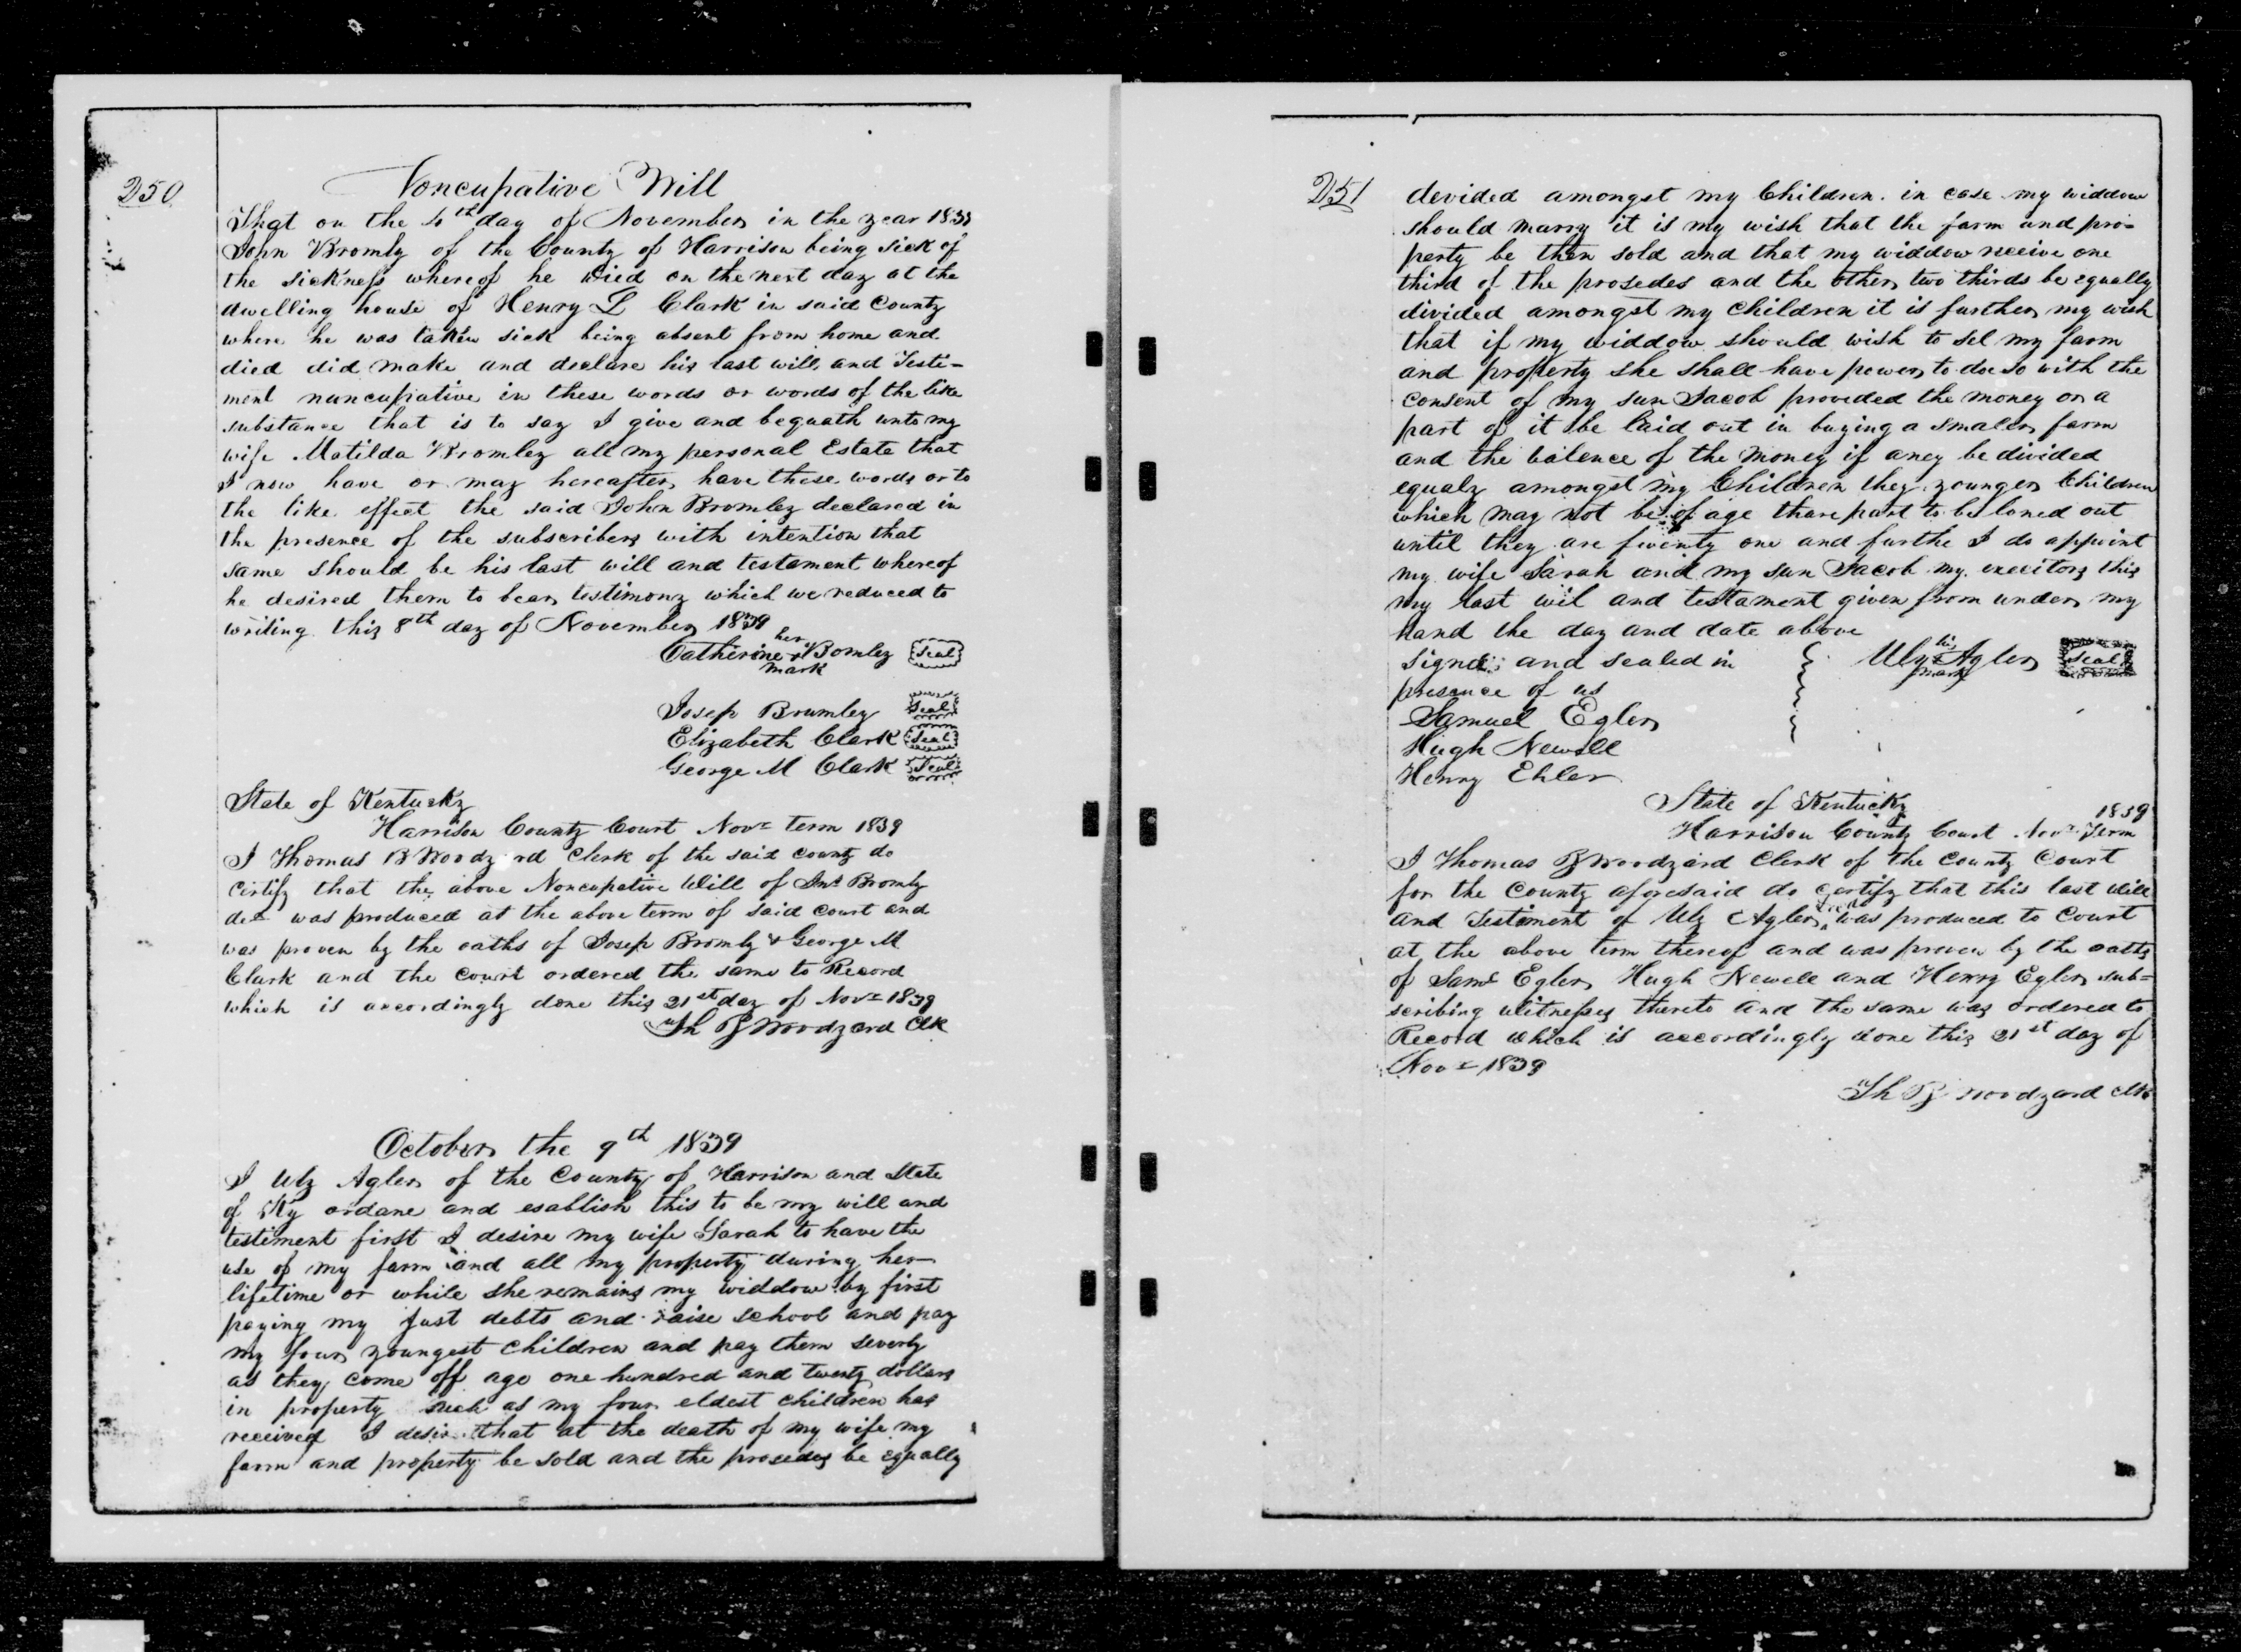 250
Noncupative Will
That on the 4th day of November in the year 1839
John Bromly of the County of Harrison being sick of
the sickness whereof he died on the next day at the
dwelling house of Henry L Clark in said County
where he was taken sick being absent from home and
died did make and declare his last will, and Testi-
ment nuncupative in these words or words of the like
substance that is to say I give and bequath unto my
wife Matilda Bromley all my personal Estate that
I now have or may hereafter have these words or to
the like effect the said John Bromley declared in
the presence of the subscribers with intention that
same should be his last will and testament whereof
he desired them to bear testimony which we reduced to
writing this 8th day of November 1839
Catherine her x mark Bomley Seal
Josep Brumley Seal
Elizabeth Clark Seal
George M Clark Seal
State of Kentucky
Harrison County Court Novr term 1839
I Thomas B Woodyard Clerk of the said county do
certify that the above Noncupative Will of Jno Bromly
dec was produced at the above term of said court and
was proven by the oaths of Josep Bromly & George M
Clark and the court ordered the same to Record
which is accordingly done this 21st day of Novr 1839
Th B Woodyard Clk
October the 9th 1839
I Uly Agler of the County of Harrison and State
of Ky ordane and esablish this to be my will and
testiment first I desire my wife Sarah to have the
use of my farm and all my property during her
lifetime or while she remains my widdow by first
paying my just debts and raise school and pay
my four youngest children and pay them severly
as they come off age one hundred and twenty dollars
in property such as my four eldest children has
received I desire that at the death of my wife my
farm and property be sold and the prosedes be equally
251
devided amongst my Children. in case my widdow
should marry it is my wish that the farm and pro-
perty be then sold and that my widdow receive one
third of the prosedes and the other two thirds be equally
divided amongst my children it is further my wish
that if my widdow should wish to sel my farm
and property she shall have power to doe so with the
consent of my sun Jacob provided the money or a
part of it be laid out in buying a smaler farm
and the balence of the money if aney be divided
equaly amongst my Children they younger Children
which may not be of age thare part to be loned out
until they are twenty one and furthe I do appoint
my wife Sarah and my sun Jacob my exectors this
my last wil and testament given from under my
hand the day and date above
Signed and sealed in
Uly his x mark Agler Seal
presence of us
Samuel Egler
Hugh Newell
Henry Ehler
State of Kentucky
Harrison County Court Novr Term 1839
I Thomas B Woodyard Clerk of the County Court
for the County aforesaid do certify that this last will
and Testiment of Uly Agler decd was produced to Court
at the above term thereof and was proven by the oaths
of Saml Egler Hugh Newell and Henry Egler sub-
scribing witnesses thereto and the same was ordered to
Record which is accordingly done this 21st day of
Novr 1839
Th B Woodyard Clk